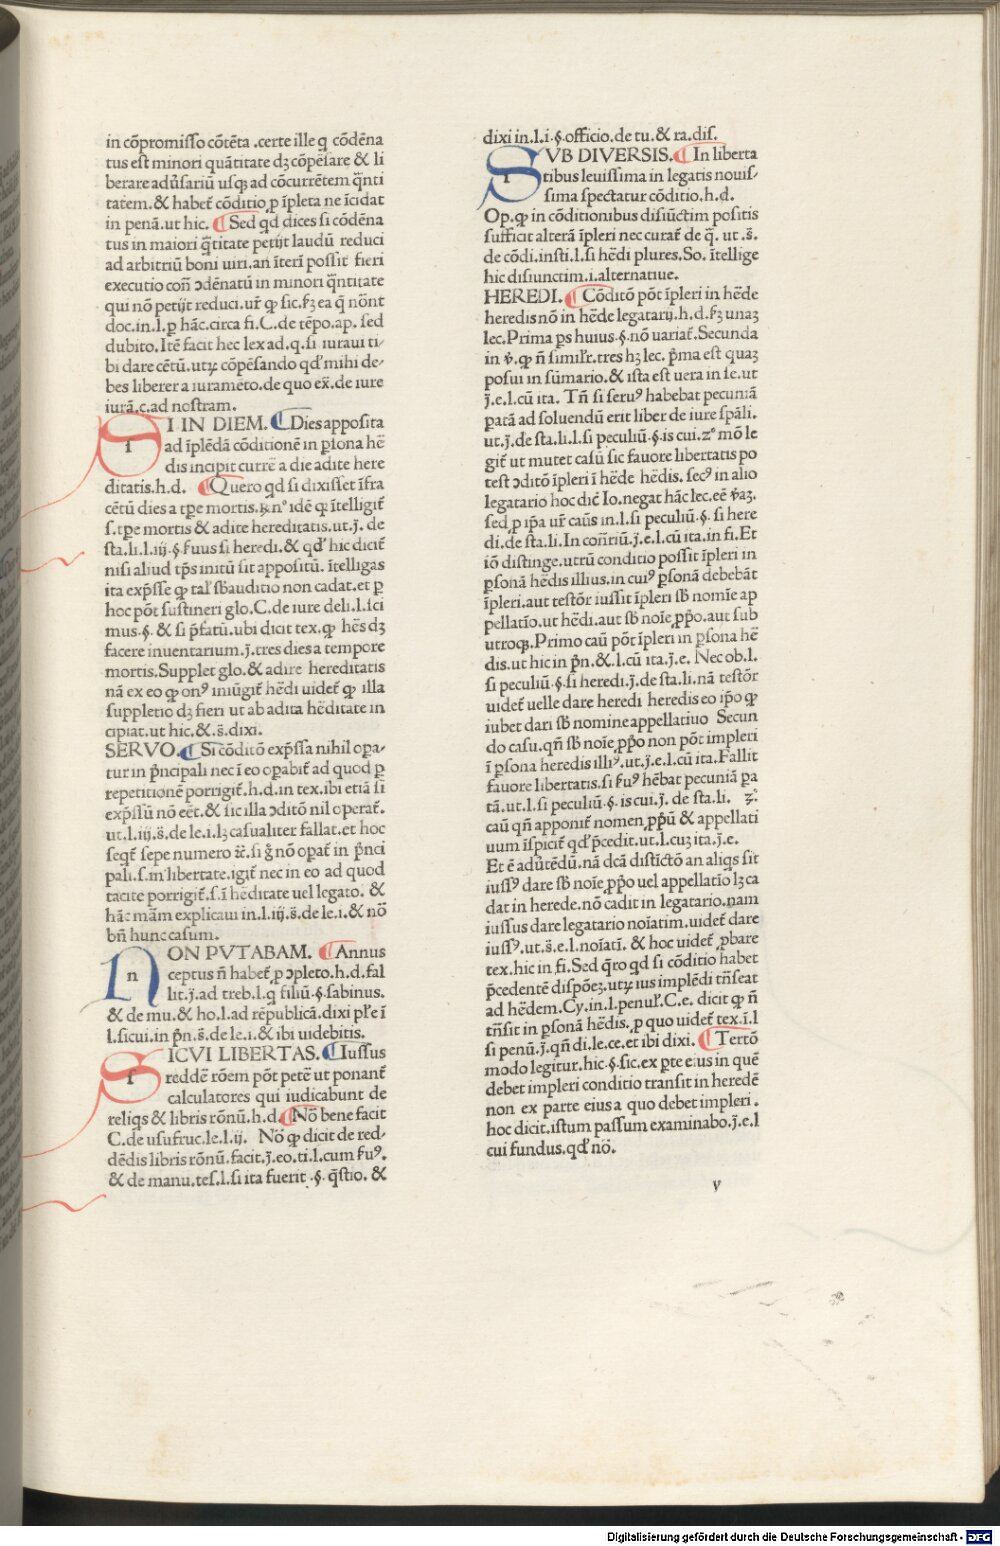 in cõpromiſſo cõtẽta .certe ille q cõdẽna
tus eſt minori quãtitate dꝫ cõpẽſare & li
berare aduerſariũ uſqꝫ ad cõcurrẽtem q̃nti
tatem.& habet̃ cõditio ꝓ ĩpleta ne ĩcidat
in penã.ut hic. ¶ Sed qd dices ſi cõdẽna
tus in maiori q̃titate petijt laudũ reduci
ad arbitriũ boni uiri.an ĩterĩ poſſit fieri
executio coñ ↄdẽnatũ in minori q̃ntitate
qui nõ petijt reduci.ur̃ ꝙ ſic.ſꝫ ea q̃ nõnt
doc.in.l.ꝑ hãc.circa fi.C.de tẽpo.ap. ſed
dubito.Itẽ facit hec lex ad.q.ſi iuraui ti/
bi dare cẽtũ.utꝝ cõpẽſando qd' mihi de/
bes liberer a iuramẽto.de quo ex̃.de iure
iurã.c.ad noſtram.
SI IN DIEM. ¶ Dies appoſita
ad ĩplẽdã cõditionẽ in ꝑſona hẽ
dis incipit currẽ a die adite here
ditatis.h.d. ¶ Quero qd ſi dixiſſet ĩfra
cẽtũ dies a tꝑe mortis.ꝶ.n° idẽ ꝙ ĩtelligit̃
ſ.tꝑe mortis & adite hereditatis.ut.j̃. de
ſta.li.l.iij.§.ſuus ſi heredi.& qd' hic dicit̃
niſi aliud tp̃s initũ ſit appoſitũ. ĩtelligas
ita exp̃ſſe ꝙ tal' ſb̃auditio non cadat.et ꝑ
hoc põt ſuſtineri glo.C.de iure deli.l.ſci
mus.§.& ſi p̃fatũ.ubi dicit tex.ꝙ hẽs dꝫ
facere inuentarium.j̃.tres dies a tempore
mortis.Supplet glo.& adire hereditatis
nã ex eo ꝙ onꝰ iniũgit̃ hẽdi uidet̃ ꝙ illa
ſuppletio dꝫ fieri ut ab adita hẽditate in
cipiat.ut hic.& s̃.dixi.
SERVO. ¶ Si cõditõ exp̃ſſa nihil opa/
tur in p̃ncipali nec ĩ eo opabit̃ ad quod ꝑ
repetitionẽ porrigit̃.h.d.in tex.ibi etiã ſi
exp̃ſſũ nõ eẽt.& ſic illa ↄditõ nil operat̃.
ut.l.iij.s̃.de le.i.lꝫ caſualiter fallat.et hoc
ſeqt̃ ſepe numero x̃.ſi g̃ nõ opat̃ in p̃nci
pali.ſ.in libertate.igit̃ nec in eo ad quod
tacite porrigit̃.ſ.ĩ hẽditate uel legato. &
hãc mãm explicaui in.l.iij.s̃.de le.i.& nõ
bñ hunc caſum.
NON PVTABAM. ¶ Annus
ceptus ñ habet̃ ꝓ ↄpleto.h.d.fal
lit.j̃.ad treb.l.q filiũ.§.ſabinus.
& de mu.& ho.l.ad rẽpublicã.dixi pl'e ĩ
l.ſicui.in p̃n.s̃.de le.i.& ibi uidebitis.
SICVI LIBERTAS. ¶ Iuſſus
reddẽ rõem põt petẽ ut ponant̃
calculatores qui iudicabunt de
reliq̃s & libris rõnũ.h.d. ¶ Nõ bene facit
C.de uſufruc.le.l.ij. Nõ ꝙ dicit de red/
dẽdis libris rõnũ.facit.j̃.eo.ti.l.cum ſuꝰ.
& de manu.teſ.l.ſi ita fuerit .§. q̃ſtio. &
dixi in.l.i.§.officio.de tu.& ra.diſ.
SVB DIVERSIS. ¶ In liberta
tibus leuiſſima in legatis nouiſ/
ſima ſpectatur cõditio.h.d.
Op.ꝙ in cõditionibus diſiũctim poſitis
ſufficit alterã ĩpleri nec curat̃ de q̃. ut .s̃.
de cõdi.inſti.l.ſi hẽdi plures.So. ĩtellige
hic diſiunctim.i.alternatiue.
HEREDI. ¶ Cõditõ põt ĩpleri in hẽde
heredis nõ in hẽde legatarij.h.d.ſꝫ unaꝫ
lec.Prima ps huius .§.nõ uariat̃. Secunda
in ꝟ.ꝙ ñ ſimilr̃.tres hꝫ lec. p̃ma eſt quaꝫ
poſui in ſũmario.& iſta eſt uera in ſe.ut
j̃.e.l.cũ ita. Tñ ſi ſeruꝰ habebat pecuniã
patã ad ſoluendũ erit liber de iure ſpãli.
ut.j̃.de ſta.li.l.ſi peculiũ.§.is cui.z° mõ le
git̃ ut mutet caſũ ſic fauore libertatis po
teſt ↄditõ ĩpleri ĩ hẽde hẽdis. ſecꝰ in alio
legatario hoc dic̃ Io.negat hãc lec.eẽ ꝟaꝫ.
ſed ꝑ ip̃a ur̃ caũs in.l.ſi peculiũ.§.ſi here
di.de ſta.li.In coñriũ.j̃.e.l.cũ ita.in fi.Et
iõ diſtinge.utrũ conditio poſſit ĩpleri in
ꝑſonã hẽdis illius.in cuiꝰ ꝑſonã debebãt
ĩpleri.aut teſtõr iuſſit ĩpleri ſb̃ nomĩe ap
pellatio.ut hẽdi.aut ſb̃ noĩe ꝓp̃o.aut ſub
utroqꝫ.Primo caũ põt ĩpleri in ꝑſona hẽ
dis.ut hic in p̃n.&.l.cũ ita.j̃.e. Nec ob.l.
ſi peculiũ.§.ſi heredi.j̃.de ſta.li.nã teſtõr
uidet̃ uelle dare heredi heredis eo ip̃o ꝙ
iubet dari ſb̃ nomine appellatiuo Secun
do caſu.qñ ſb̃ noĩe ꝓp̃o non põt impleri
ĩ ꝑſona heredis illiꝰ.ut.j̃.e.l.cũ ita.Fallit
fauore libertatis.ſi ſuꝰ hẽbat pecuniã pa
tã.ut.l.ſi peculiũ.§.is cui.j̃. de ſta.li. ʒ.°
caũ qñ apponit̃ nomen ꝓp̃ũ & appellati
uum ĩſpicit̃ qd' p̃cedit.ut.l.cuꝫ ita.j̃.e.
Et ẽ aduertẽdũ.nã dc̃a diſtĩctõ an aliqs ſit
iuſſꝰ dare ſb̃ noĩe ꝓp̃o uel appellatĩo lꝫ ca
dat in herede.nõ cadit in legatario.nam
iuſſus dare legatario noĩatim.uidet̃ dare
iuſſꝰ.ut.s̃.e.l.noĩati. & hoc uidet̃ ꝓbare
tex.hic in fi.Sed q̃ro qd ſi cõditio habet
p̃cedentẽ diſpõeꝫ.utꝝ ius implẽdi tñſeat
ad hẽdem.Cy.in.l.penul'.C.e. dicit ꝙ ñ
tñſit in ꝑſonã hẽdis.ꝓ quo uidet̃ tex.ĩ.l
ſi penũ.j̃.qñ di.le.ce.et ibi dixi. ¶ Tertõ
modo legitur.hic.§.ſic.ex ꝑte eius in quẽ
debet impleri conditio tranſit in heredẽ
non ex parte eius a quo debet impleri.
hoc dicit.iſtum paſſum examinabo.j̃.e.l
cui fundus.qd' nõ.
v
Digitalisierung gefördert durch die Deutsche Forschungsgemeinschaft - DFG